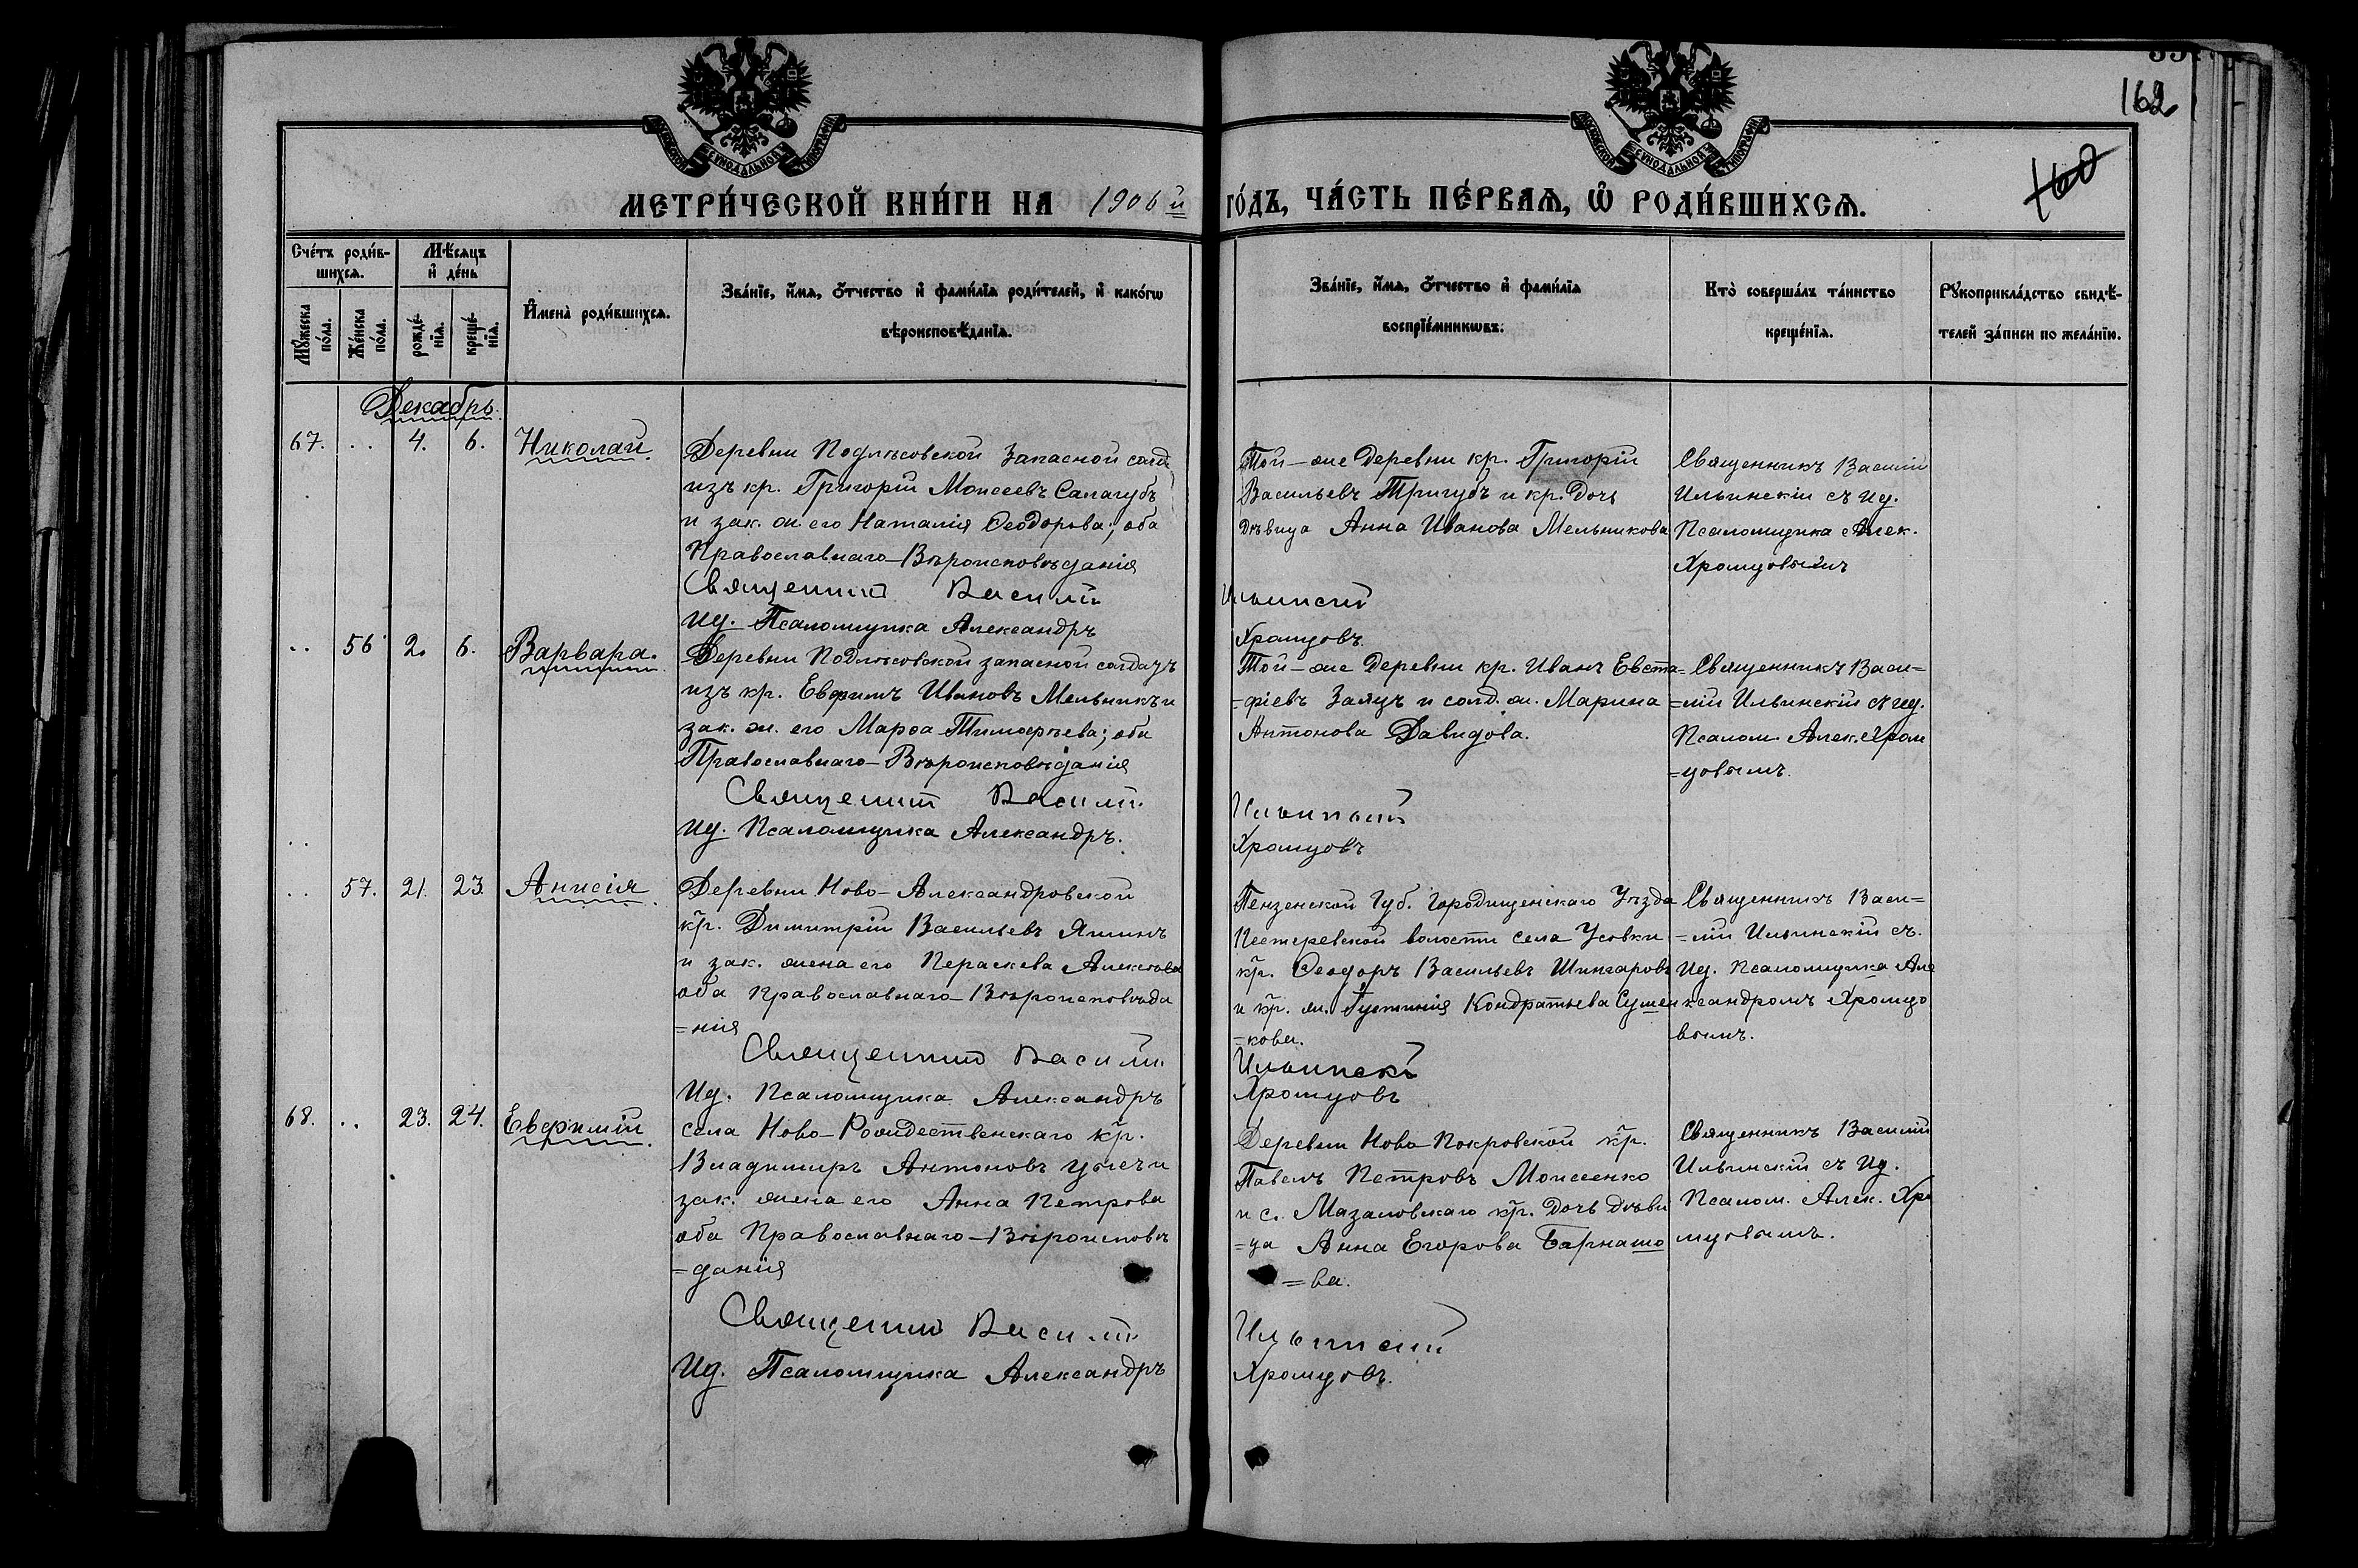 162
160
МОСКОВСКОЙ СѴНОДАЛЬНОЙ ТИПОГРАФІИ
МОСКОВСКОЙ СѴНОДАЛЬНОЙ ТИПОГРАФІИ
МЕТРИ́ЧЕСКОЙ КНИ́ГИ НА 1906 й ГО́ДЪ, ЧА́СТЬ ПЕ́РВАѦ, Ѡ҆ РОДИ́ВШИХСѦ.
Сче́тъ роди́в-
шихсѧ.
Мѣ́сѧцъ
и҆ де́нь
Мꙋ́жеска
по́ла.
Же́нска
по́ла.
рожде́-
нїѧ.
креще́-
нїѧ.
И҆мена̀ роди́вшихсѧ.
Зва́нїе, и҆́мѧ, ѻ҆́тчество и҆ фами́лїѧ роди́телей, и҆ како́гѡ
вѣроисповѣ́данїѧ.
Зва́нїе, и҆́мѧ, ѻ҆́тчество и҆ фами́лїѧ
воспрїе́мникѡвъ.
Кто̀ соверша́лъ та́инство
креще́нїѧ.
Рꙋкоприкла́дство свидѣ́-
телей за́писи по жела́нїю.
Декабрь.
67. .. 4. 6. Николай.
Деревни Подлѣсовской Запасной солд
изъ кр. Григорій Моисеевъ Салагубъ
и зак. ж. его Наталія Ѳеодорова; оба
Православнаго-Вѣроисповѣданія
Священникъ Василій
Ид. Псаломщика Александръ
Той-же Деревни кр. Григорій
Васильевъ Тригубъ и кр. Дочь
дѣвица Анна Иванова Мельникова
Ильинскій
Хромцовъ.
Священникъ Василій
Ильинскій съ ид.
Псаломщика Алек.
Хромцовымъ
.. 56 2. 6. Варвара.
Деревни Подлѣсовской запасной солдатъ
изъ кр. Евфимъ Ивановъ Мельникъ и
зак. ж. его Марѳа Тимофѣева; оба
Православнаго-Вѣроисповѣданія
Священникъ Василій
Ид. Псаломщика Александръ.
Той-же Деревни кр. Иванъ Евста=
=фіевъ Заяцъ и солд. ж. Марина
Антонова Давидова.
Ильинскій
Хромцовъ
Священникъ Васи=
=лій Ильинскій съ ид.
Псалом. Алек. Хром
=цовымъ.
.. 57. 21. 23. Анисія.
Деревни Ново-Александровской
кр. Димитрій Васильевъ Яшинъ
и зак. жена его Параскева Алексѣева
оба Православнаго-Вѣроисповѣда
=нія
Священникъ Василій
Ид. Псаломщика Александръ
Пензенской Губ. Городищенскаго Уѣзда
волости села Усовки
кр. Ѳеодоръ Васильевъ Шингаровъ
и кр. ж. Іустинія Кондратьева Сушен
=кова.
Ильинскій
Хромцовъ
Священникъ Васи=
=лій Ильинскій съ
Ид. Псаломщика Але
ксандромъ Хромцо
вымъ.
68. .. 23. 24. Евфимій.
села Ново-Рождественскаго кр.
Владимиръ Антоновъ и
зак. жена его Анна Петрова
оба Православнаго-Вѣроисповѣ
=данія
Священникъ Василій
Ид. Псаломщика Александръ
Деревни Ново Покровской кр.
Павелъ Петровъ Моисеенко
и с. Мазановскаго кр. дочь дѣви
=ца Анна Егорова Барнашо
=ва.
Ильинскій
Хромцовъ.
Священникъ Василій
Ильинскій съ Ид.
Псалом. Алек. Хро
мцовымъ.